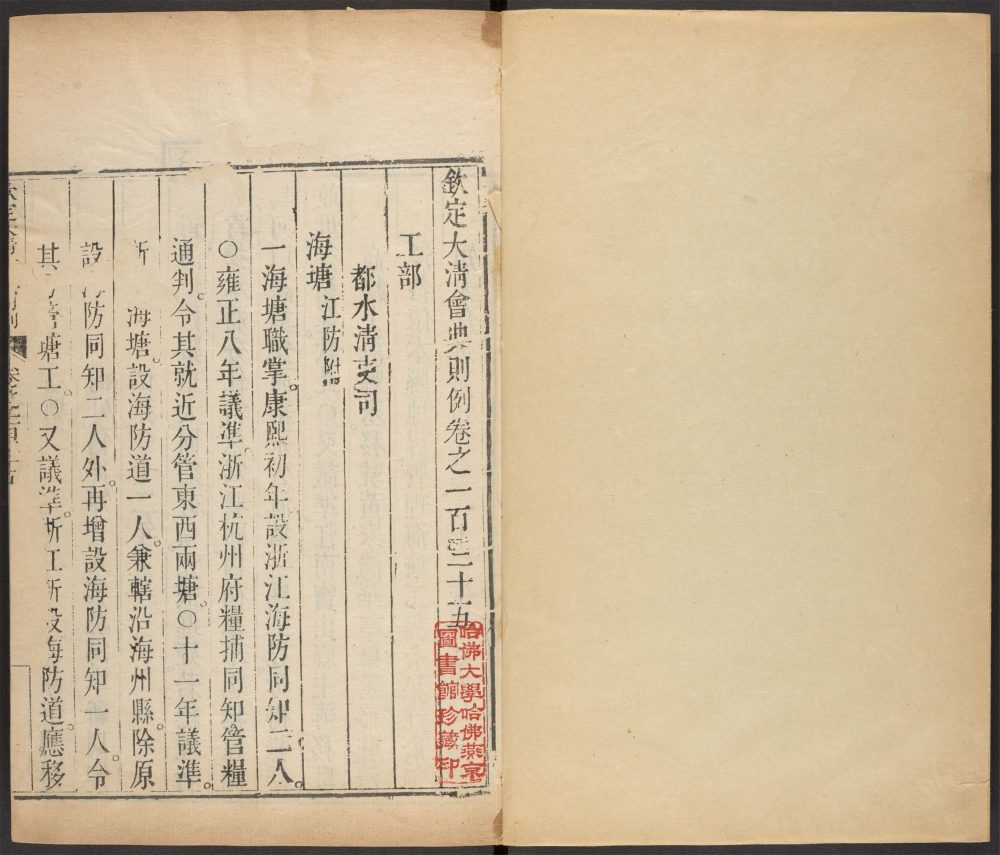 欽定大清會典則例卷之一百三十五
工部
都水清吏司
海塘江防附
一海塘職掌。康熙初年設浙江海防同知二人。
○雍正八年議準。浙江杭州府糧捕同知管糧
通判。令其就近分管東西兩塘。○十一年議準
海塘。設海防道一人。兼轄沿海州縣。除原
設海防同知二人外。再增設海防同知一人。令
其管塘工。○又議準。浙江新設海防道。應移
哈佛大學哈佛燕京
圖書館珍藏印